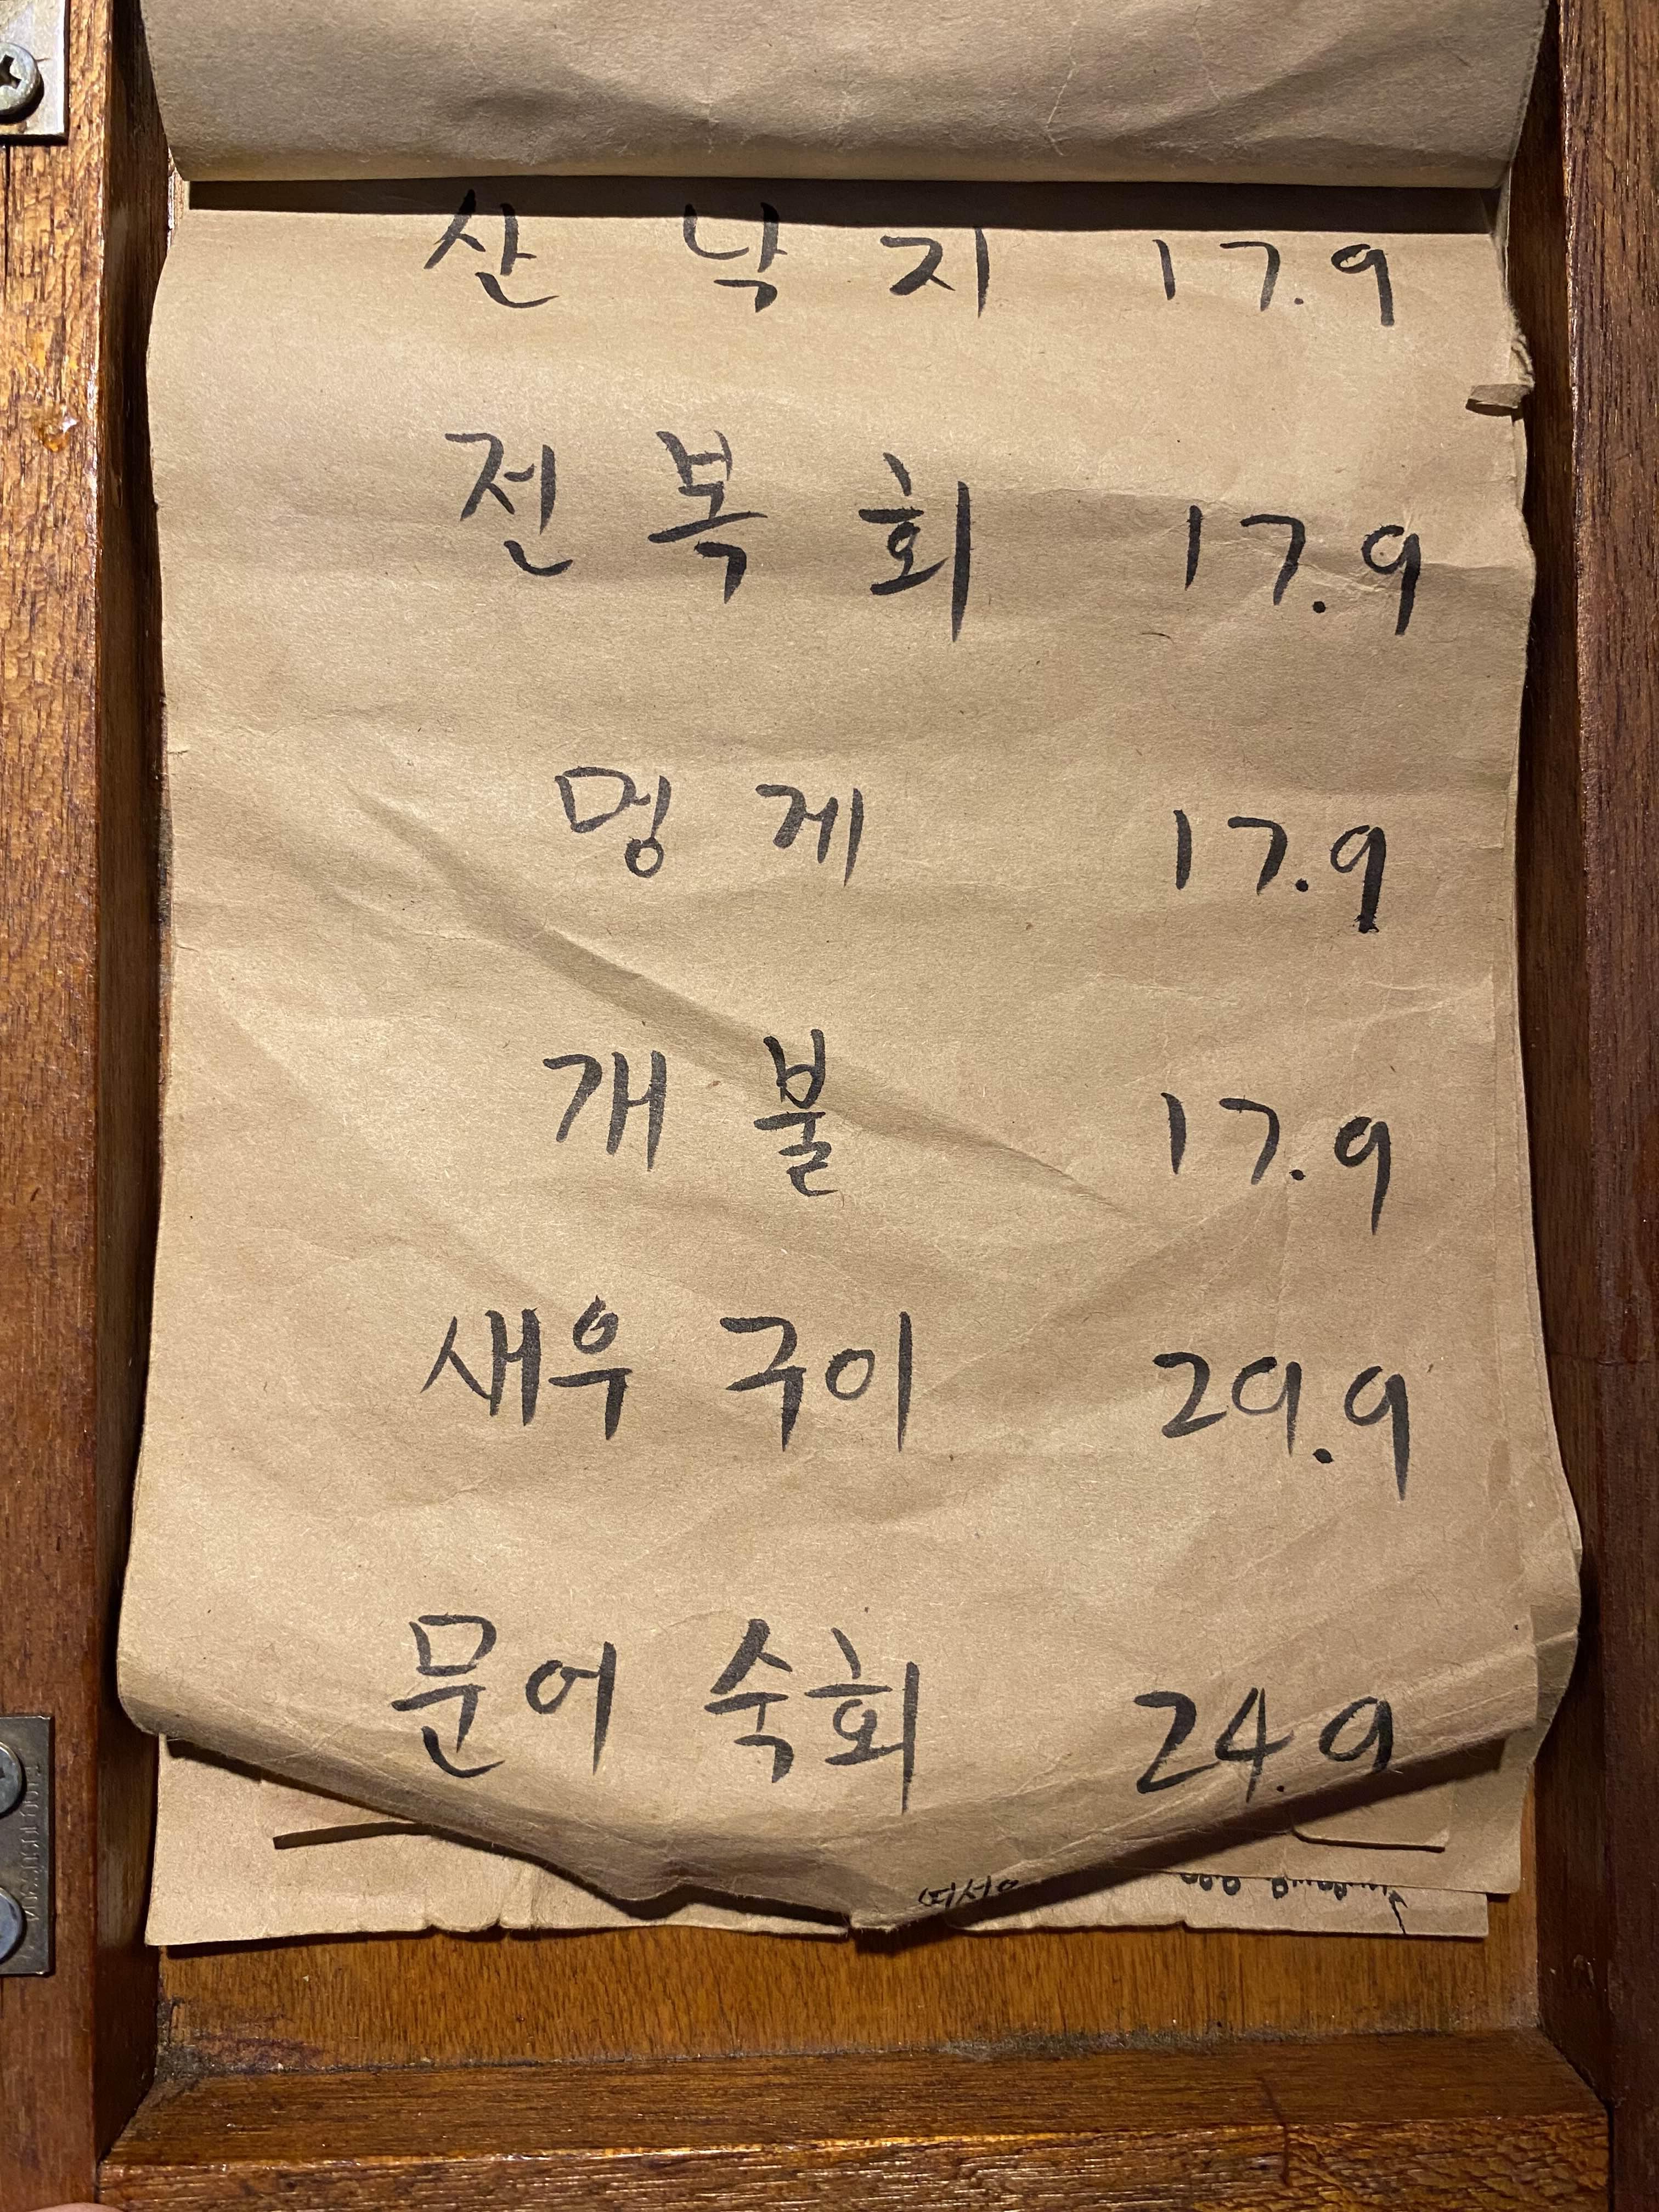 산 낙 지 17.9
전 복 회 17.9
멍 게 17.9
개 불 17.9
새우 구이 29.9
문어 숙회 24.9